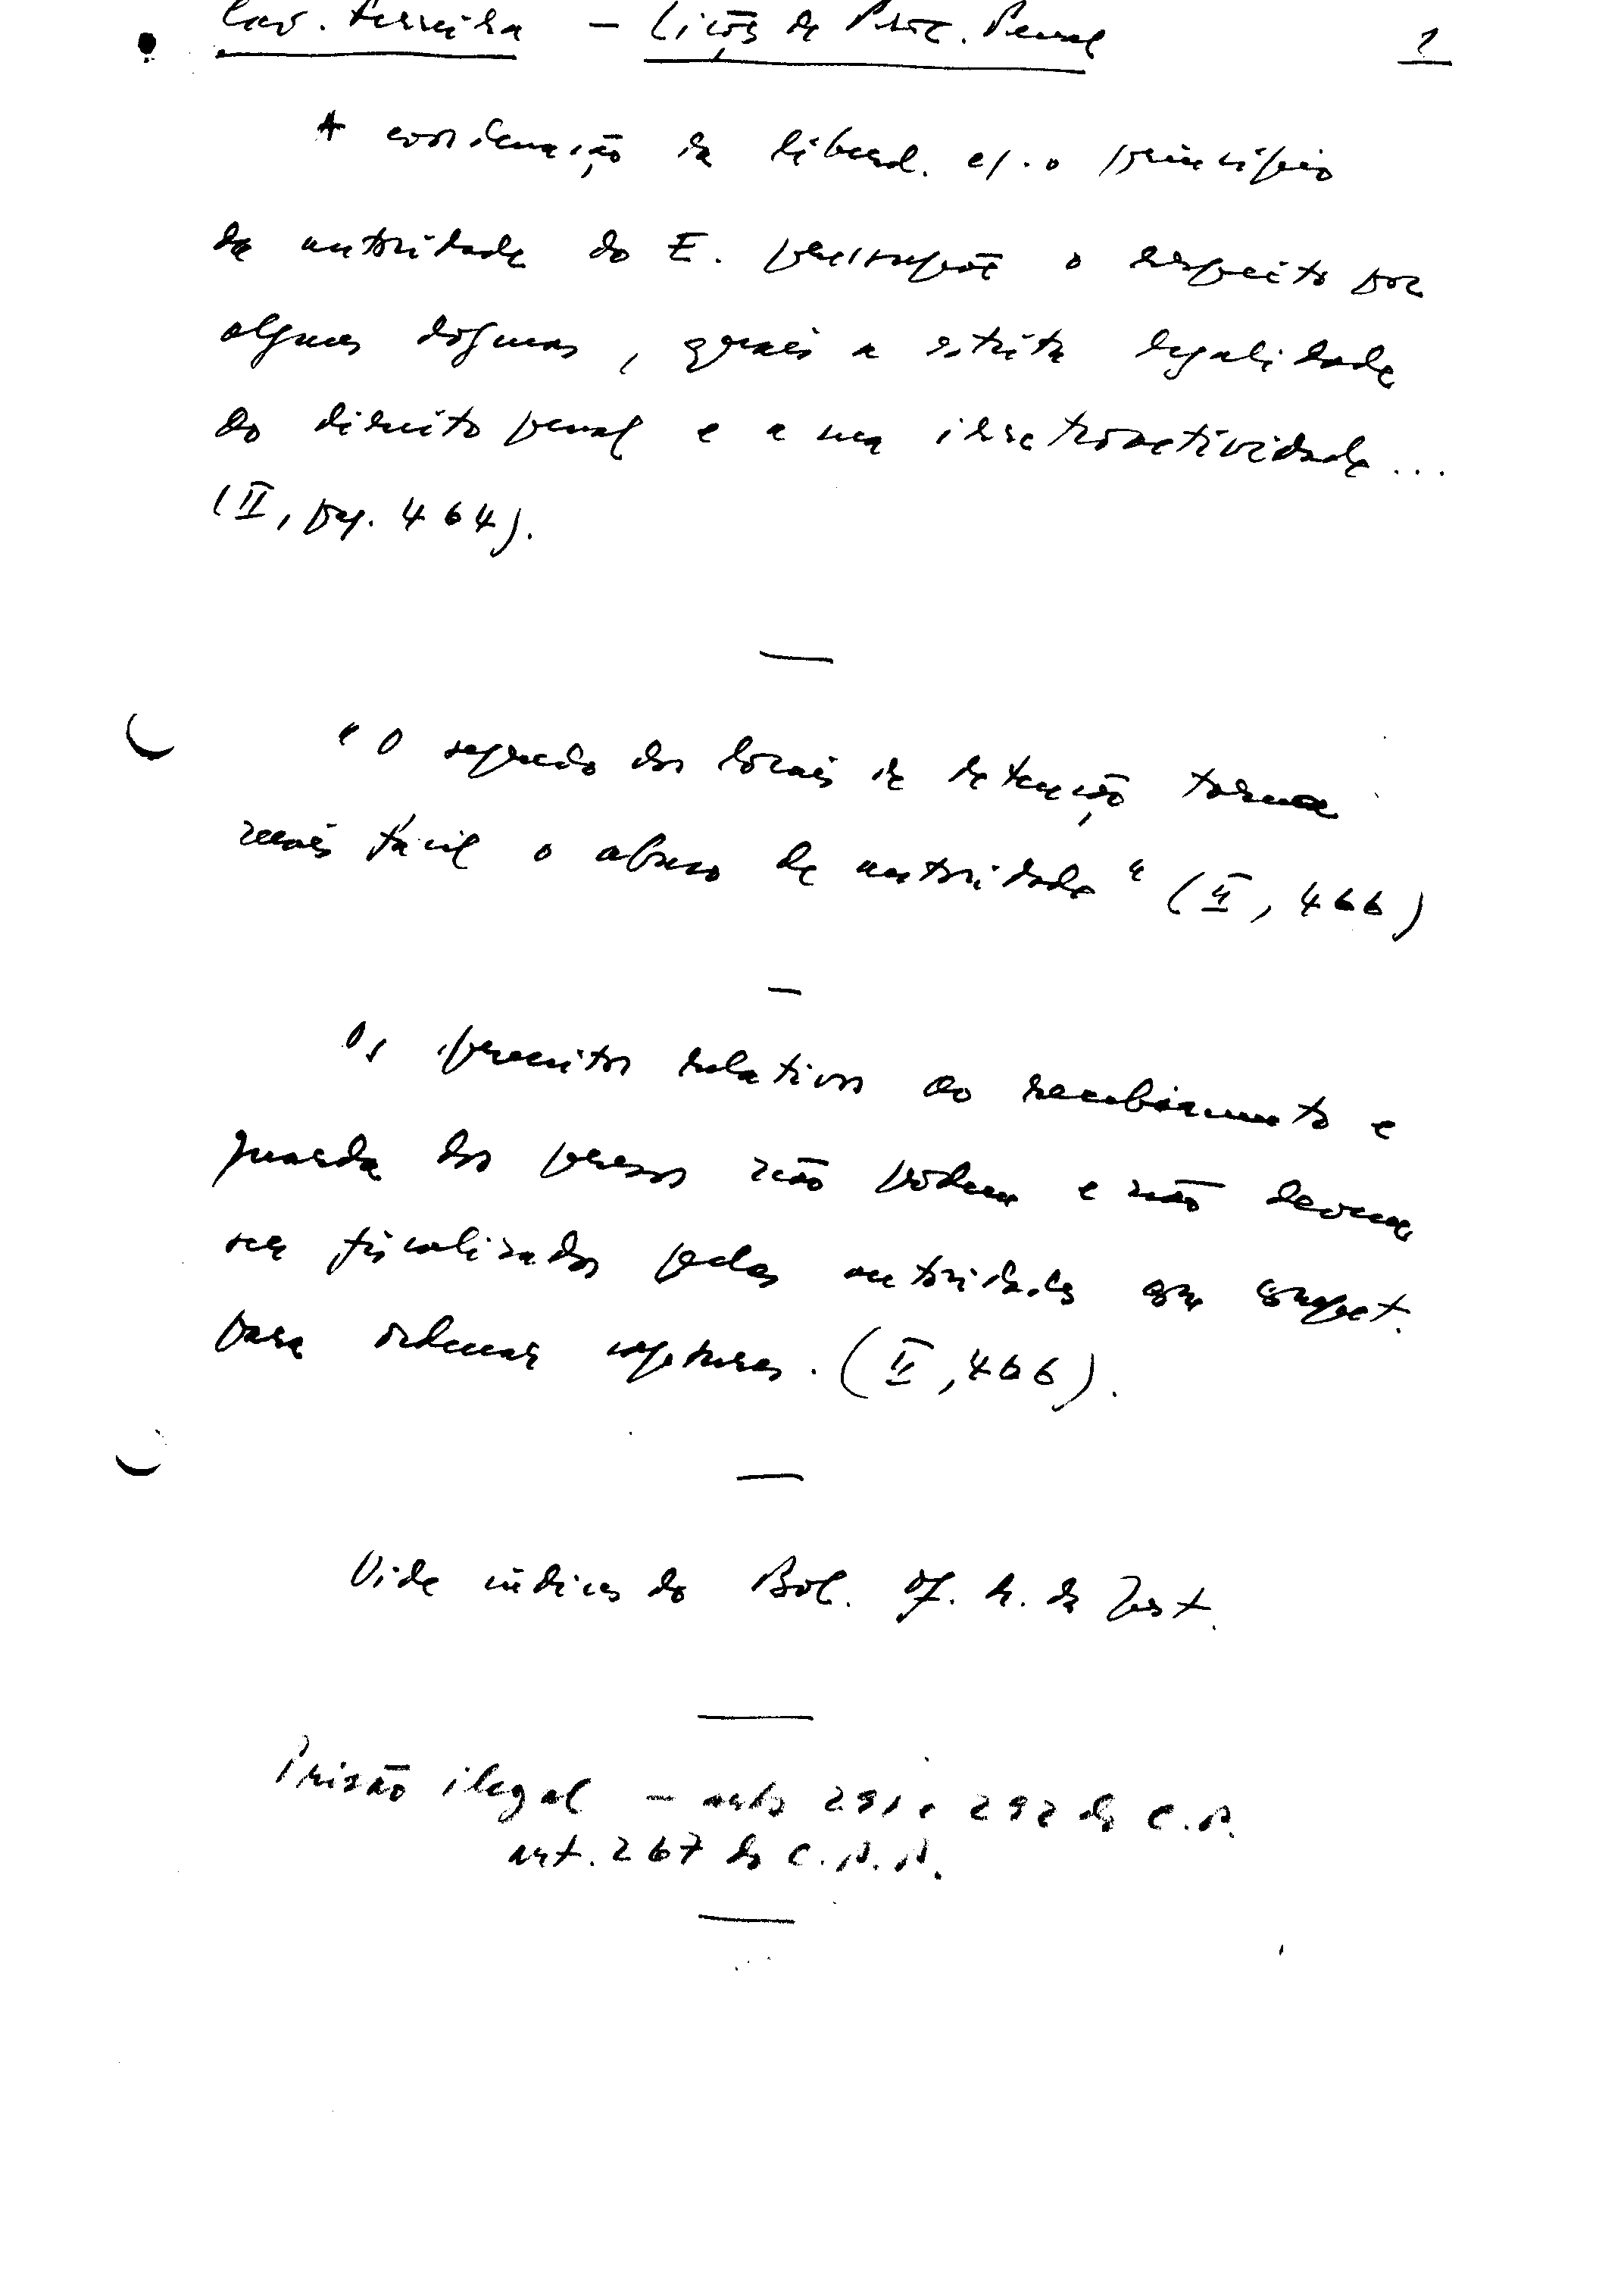 Cav. Ferreira — Lições de Proc. Penal 1
A coordenação da liberd. c/. o princípio
da autoridade do E. pressupõe o respeito por
alguns dogmas, quais a estrita legalidade
do direito penal e a sua irretroactividade...
(II, pag. 464).
"O segredo dos locais de detenção torna
mais fácil o abuso de autoridade" (II, 466)
Os preceitos relativos ao recebimento e
guarda dos presos não podem e não devem
ser fiscalizados pelas autoridades com compet.
para ordenar capturas. (II, 466).
Vide índices do Bol. Of. M. da Just.
Prisão ilegal — arts 291 e 292 do C.P.
art. 267 do C.P.P.